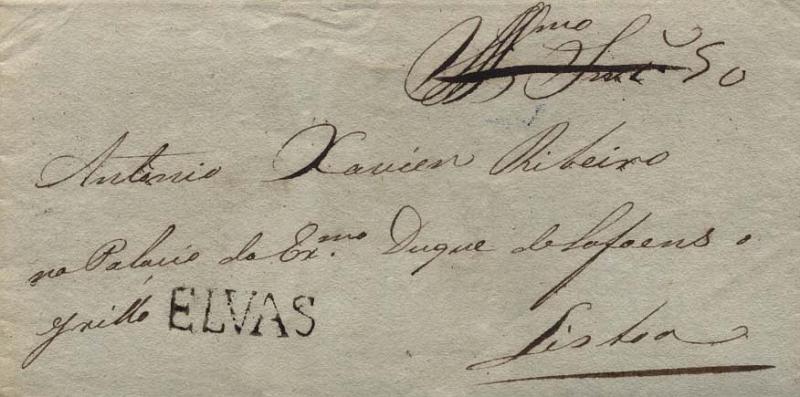 Illmo Snr 50
Antonio Xavier Ribeiro
no Palacio do Exmo. Duque de Lafoens o
Grillo ELVAS
Lisboa